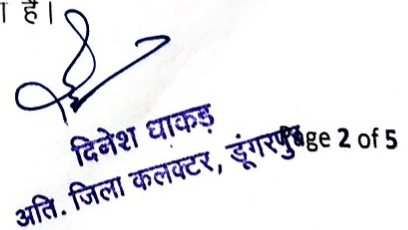 है।
दिनेश धाकड़
अति. जिला कलक्टर, डूंगरपुर
Page 2 of 5